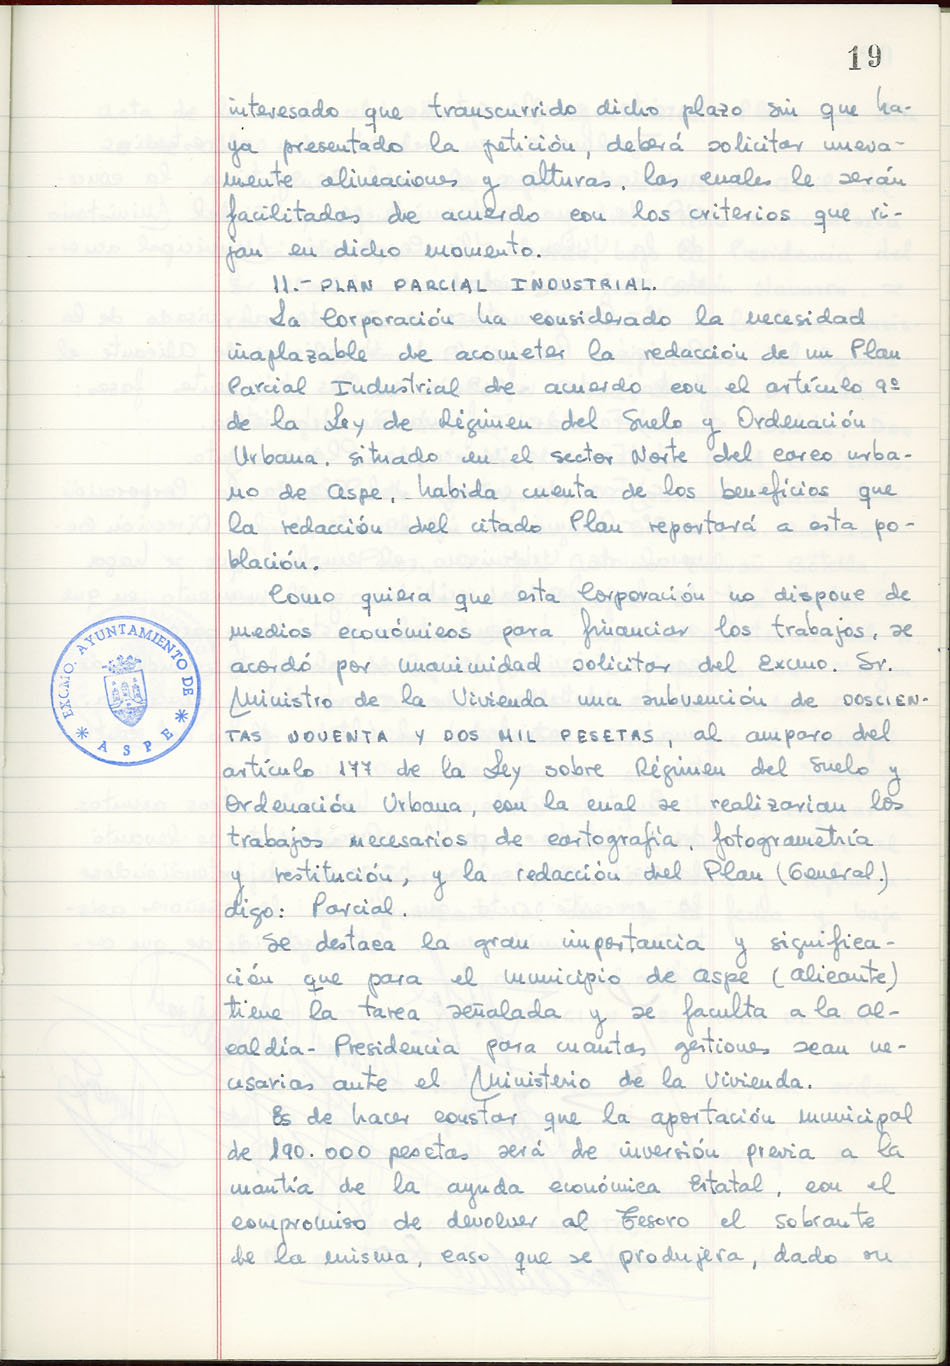 19
interesado que transcurrido dicho plazo sin que ha-
ya presentado la petición, deberá solicitar nueva-
mente alineaciones y alturas, las cuales le serán
facilitadas de acuerdo con los criterios que ri-
jan en dicho momento.
11.- PLAN PARCIAL INDUSTRIAL.
La Corporación ha considerado la necesidad
inaplazable de acometer la redacción de un Plan
Parcial Industrial de acuerdo con el artículo 9º
de la Ley de Régimen del Suelo y Ordenación
Urbana, situado en el sector Norte del casco urba-
no de Aspe, habida cuenta de los beneficios que
la redacción del citado Plan reportará a esta po-
blación.
Como quiera que esta Corporación no dispone de
medios económicos para financiar los trabajos, se
acordó por unanimidad solicitar del Excmo. Sr.
Ministro de la Vivienda una subvención de DOSCIEN-
TAS NOVENTA Y DOS MIL PESETAS, al amparo del
artículo 177 de la Ley sobre Régimen del Suelo y
Ordenación Urbana, con la cual se realizarían los
trabajos necesarios de cartografía, fotogrametría
y restitución, y la redacción del Plan (General.)
digo: Parcial.
Se destaca la gran importancia y significa-
ción que para el municipio de Aspe (Alicante)
tiene la tarea señalada y se faculta a la Al-
caldía-Presidencia para cuantas gestiones sean ne-
cesarias ante el Ministerio de la Vivienda.
Es de hacer constar que la aportación municipal
de 190.000 pesetas será de inversión previa a la
cuantía de la ayuda económica Estatal, con el
compromiso de devolver al Tesoro el sobrante
de la misma, caso que se produjera, dado su
EXCMO. AYUNTAMIENTO DE
* ASPE *